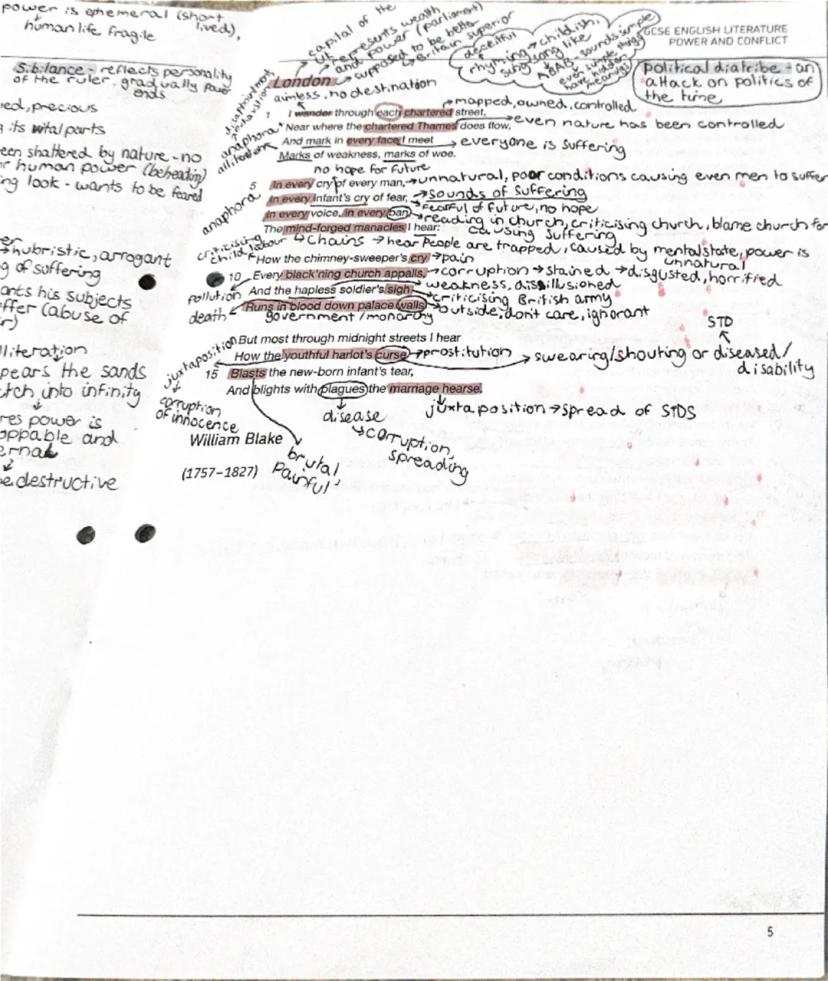 power is ephemeral (short lived),
human life fragile
Sibilance - reflects personality
of the ruler, gradually power
ends
precious
its vital parts
been shattered by nature - no
human power (beheading)
look - wants to be feared
hubristic, arrogant
of suffering
his subjects
(abuse of
alliteration
appears the sands
stretch into infinity
power is
unstoppable and
eternal
destructive
GCSE ENGLISH LITERATURE
POWER AND CONFLICT
capital of the
UK
represents wealth
and power (parliament)
supposed to be better
Britain superior
deceitful
rhyming → childish,
singsong like
ABAB - sounds simple
even simple things
have hidden
meanings
political diatribe - an
attack on politics of
the time
London
aimless, no destination
mapped, owned, controlled
1 I wander through each chartered street,
anaphora
Near where the chartered Thames does flow,
even nature has been controlled
alliteration
And mark in every face I meet
everyone is suffering
Marks of weakness, marks of woe.
no hope for future
5 In every cry of every man,
unnatural, poor conditions causing even men to suffer
In every Infant's cry of fear,
sounds of suffering
fearful of future, no hope
anaphora
In every voice, in every ban,
reading in church, criticising church, blame church for
causing suffering
The mind-forged manacles I hear:
chains → hear people are trapped, caused by mental state, power is
unnatural
criticising
child labour
How the chimney-sweeper's cry
pain
10 Every black'ning church appalls,
corruption → stained → disgusted, horrified
pollution
And the hapless soldier's sigh
weakness, dissillusioned
criticising British army
death
Runs in blood down palace walls
outside, don't care, ignorant
government/monarchy
But most through midnight streets I hear
juxtaposition
How the youthful harlot's curse
prostitution
swearing/shouting or diseased/
disability
STD
15 Blasts the new-born infant's tear,
And blights with plagues the marriage hearse.
corruption
of innocence
disease
corruption,
spreading
juxtaposition → spread of STDS
brutal
painful
William Blake
(1757–1827)
5